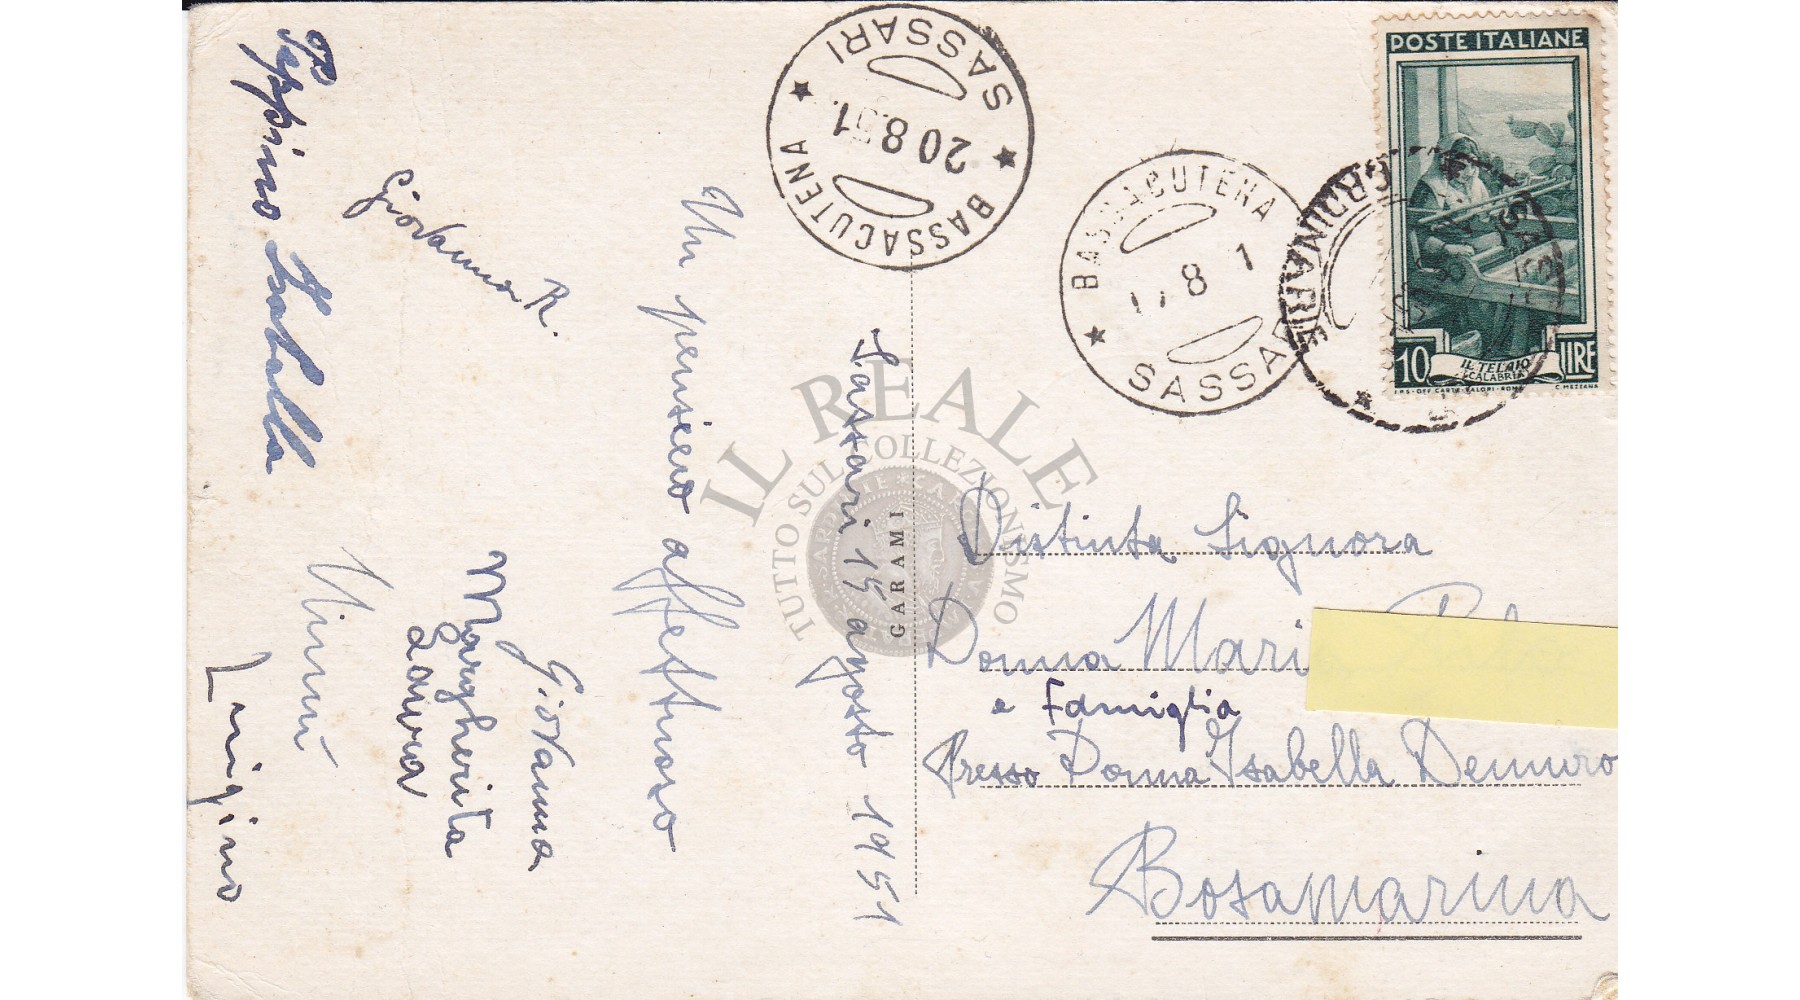 Sassari 15 agosto 1951
Un pensiero affettuoso
Giovanna
Margherita
Laura
Ninni
Luigino
Giovanna R.
Peppino Isabella
BASSACUTENA
SASSARI
20 8 51
BASSACUTENA
BASSACUTENA
8 1
SASSA
ORDINARIE
SAS
POSTE ITALIANE
10 LIRE
IL TELAIO
CALABRIA
I.P.S-OFF. CARTE-VALORI-ROMA C. MEZZANA
GARAMI
IL REALE
TUTTO SUL COLLEZIONISMO
Distinta Signora
Donna Mari
e Famiglia
Presso Donna Isabella Demuro
Bosamarina